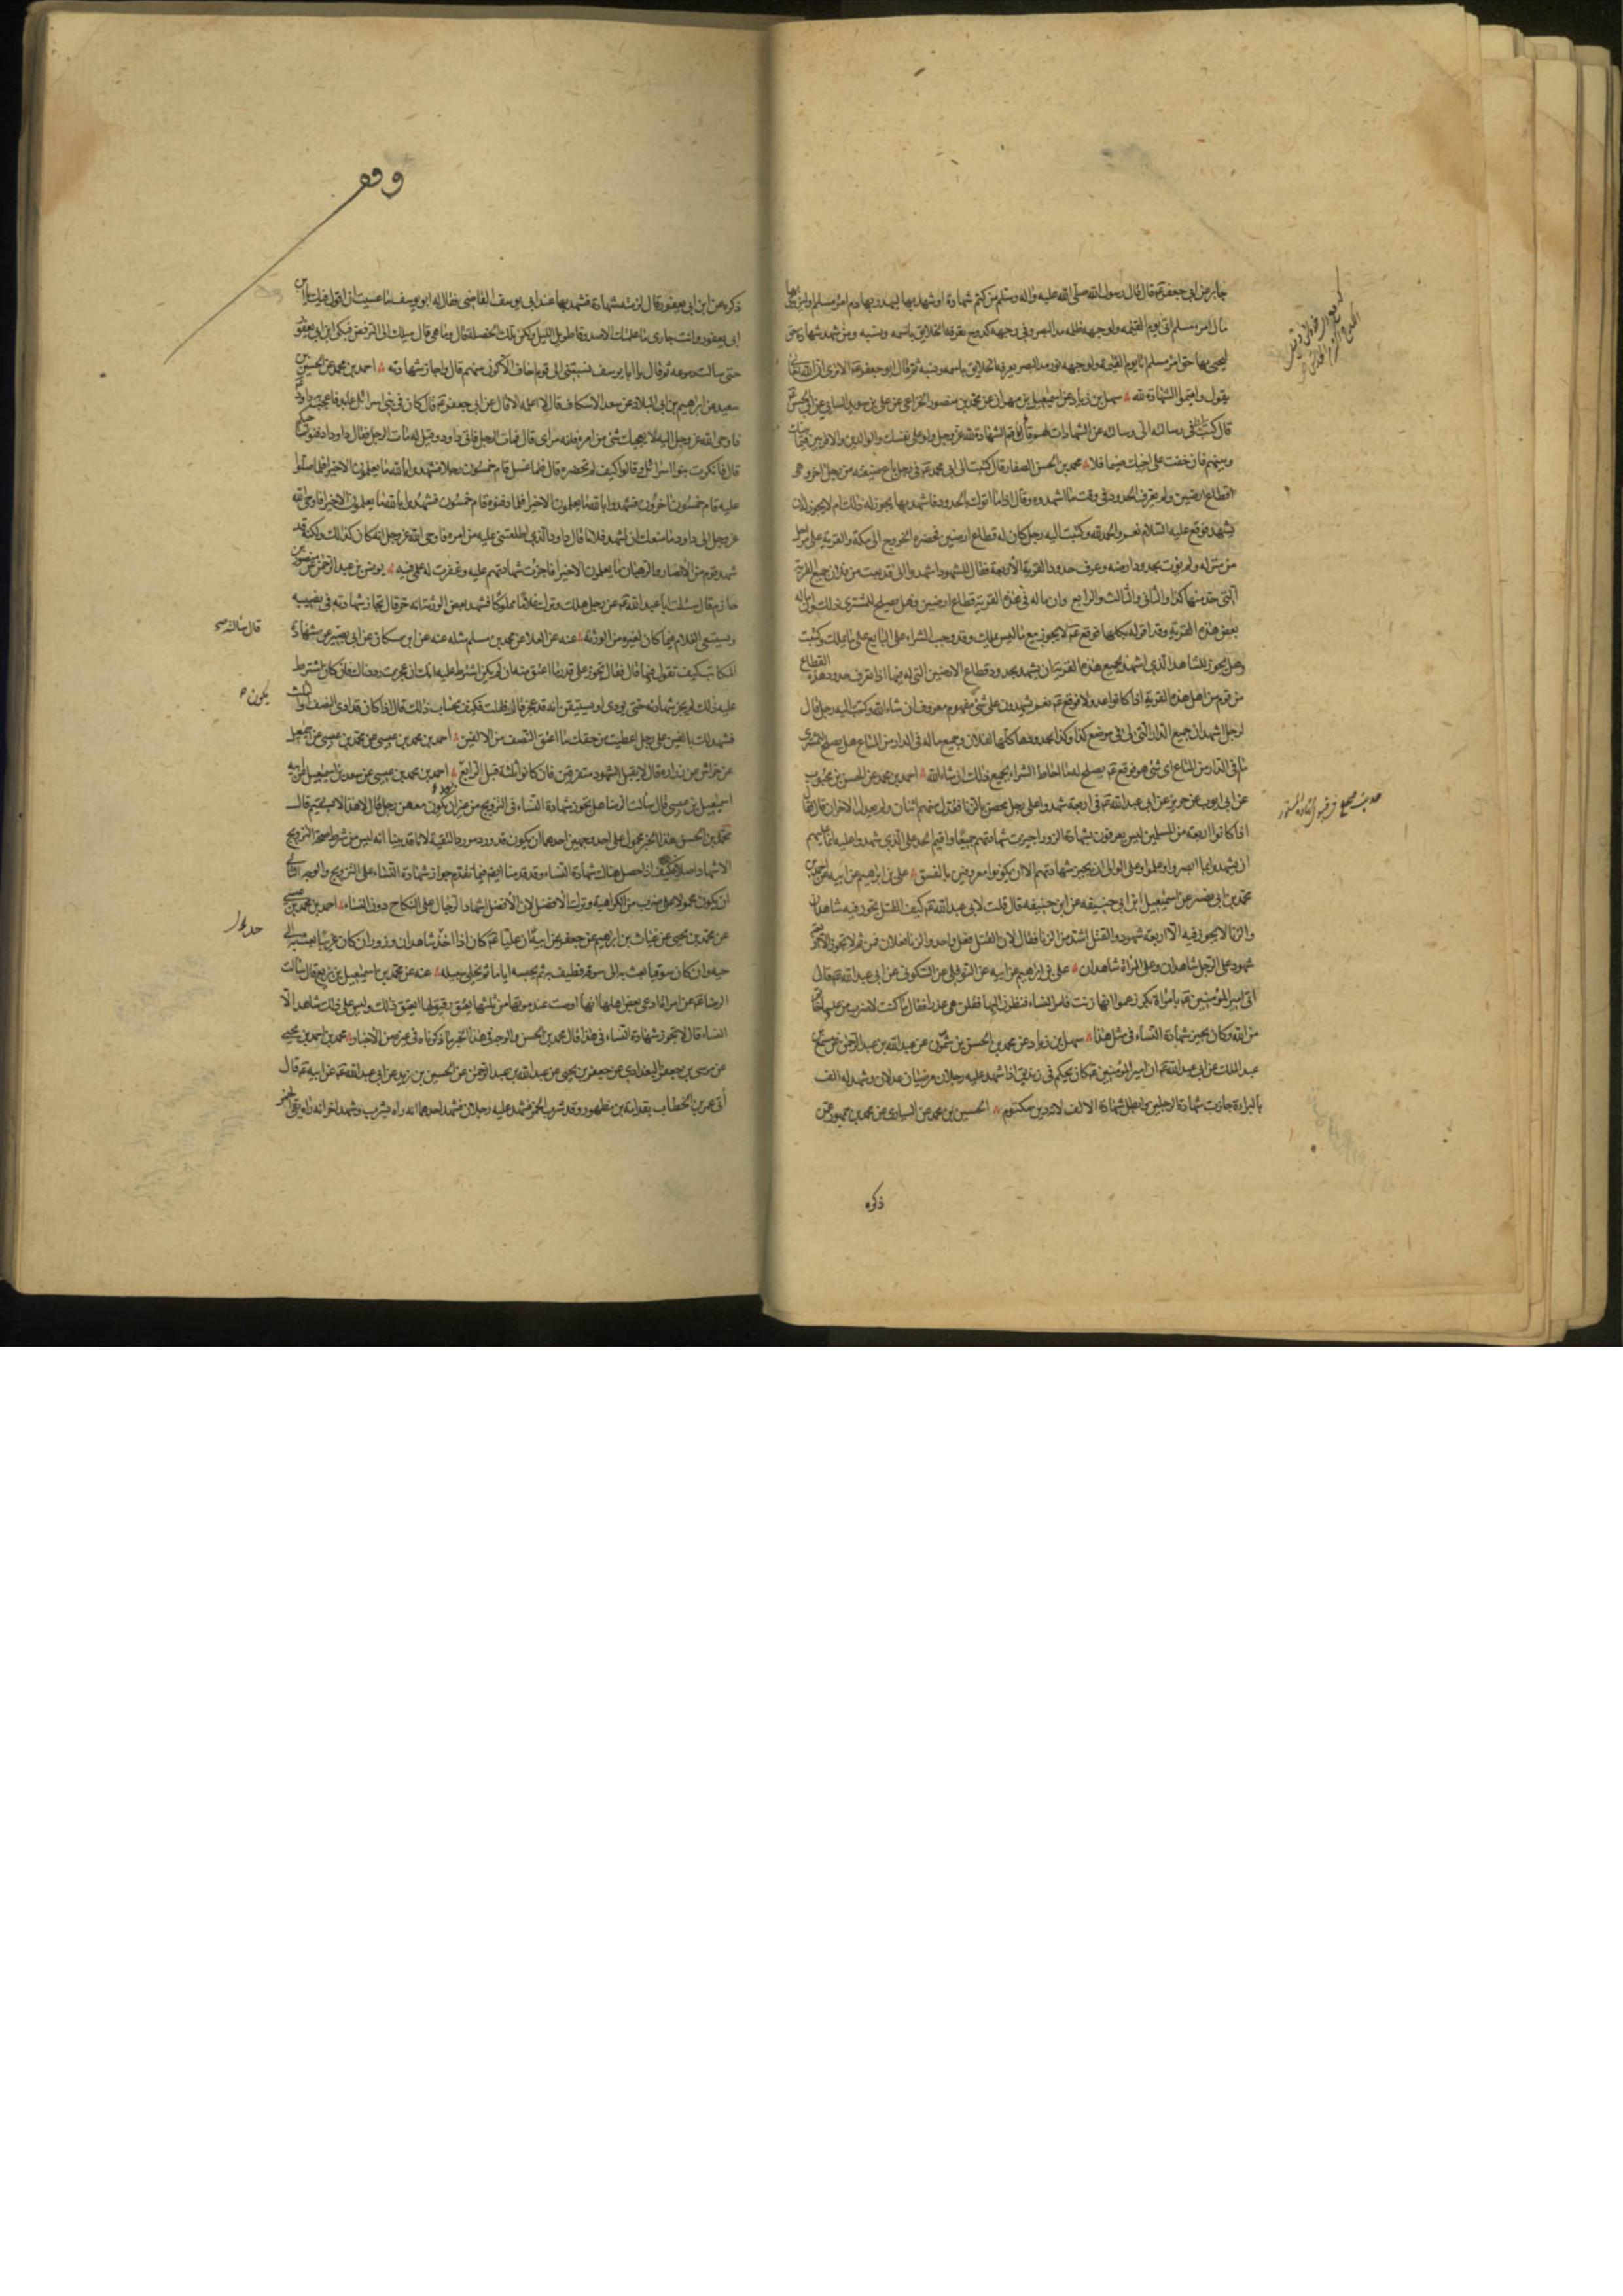 جابر عن ابى جعفر ع قال قال رسول الله صلى الله عليه واله وسلم من كتم شهادة او شهد بها ليهدر بها دم امرء مسلم او ليزوى بها
مال امرء مسلم اتى يوم القيمة ولوجهه ظلمة مد البصر وفى وجهه كدوح يعرفه الخلايق باسمه ونسبه ومن شهد شهادة حق
ليحيى بها حق امرء مسلم اتا يوم القيمة ولوجهه نور مد البصر يعرفه الخلايق باسمه ونسبه ثم قال ابو جعفر ع الا ترى ان الله
يقول واقيموا الشهادة لله سهل بن زياد عن اسمعيل بن مهران عن محمد بن منصور الخزاعى عن على بن سويد السايى عن ابى الحسن ع
قال كتب الى فى رسالته الى وسالته عن الشهادات لهم قال فاقم الشهادة لله عز وجل ولو على نفسك والوالدين والاقربين فيما بينك
وبينهم فان خفت على اخيك ضيما فلا محمد بن الحسن الصفار قال كتبت الى ابى محمد ع فى رجل باع ضيعته من رجل اخر وهى
قطاع ارضين ولم يعرف الحدود فى وقت ما اشهده وقال اذا ما اتوك بالحدود فاشهد بها يجوز له ذلك ام لا يجوز له ان
يشهد فوقع عليه السلام نعم والحمد لله وكتبت اليه رجل كان له قطاع ارضين فحضره الخروج الى مكة والقرية على مراحل
من منزله ولم يؤت بحدود ارضه وعرف حدود القرية الاربعة فقال للشهود اشهدوا انى قد بعت من فلان جميع القرية
التى حد منها كذا والثانى والثالث والرابع وانما له فى هذه القرية قطاع ارضين فهل يصلح للمشترى ذلك وانما له
بعض هذه القرية وقد اقر له بكلها فوقع ع لا يجوز بيع ما ليس يملك وقد وجب الشراء على البايع على ما يملك وكتبت
وهل يجوز للشاهد الذى اشهد بجميع هذه القرية ان يشهد بحدود قطاع الارضين التى له فيها اذا تعرف حدود هذه القطاع
من قوم من اهل هذه القرية اذا كانوا عدولا فوقع ع نعم يشهدون على شئ مفهوم معروف ان شاء الله وكتب اليه رجل قال
لرجل اشهد ان جميع الدار التى لى فى موضع كذا وكذا بحدودها كلها لفلان وجميع ماله فى الدار من المتاع هل يصلح للمشترى
ما فى الدار من المتاع اى شئ هو فوقع ع يصلح له ما احاط الشراء بجميع ذلك ان شاء الله احمد بن محمد عن الحسن بن محبوب
عن ابى ايوب عن حريز عن ابى عبد الله ع فى اربعة شهدوا على رجل محصن بالزنا فعدل منهم اثنان ولم يعدل الاخران قال فقال
اذا كانوا اربعة من المسلمين ليس يعرفون بشهادة الزور اجيزت شهادتهم جميعا واقيم الحد على الذى شهدوا عليه انما عليهم
ان يشهدوا بما ابصروا وعلموا وعلى الوالى ان يجيز شهادتهم الا ان يكونوا معروفين بالفسق على بن ابراهيم عن ابيه عن احمد بن
محمد بن ابى نصر عن اسمعيل ابن ابى حنيفه عن ابى حنيفه قال قلت لابى عبد الله ع كيف القتل يجوز فيه شاهدان
والزنا لا يجوز فيه الا اربعة شهود والقتل اشد من الزنا فقال لان القتل فعل واحد والزنا فعلان فمن ثم لا يجوز الا اربعة
شهود على الرجل شاهدان وعلى المراة شاهدان على بن ابراهيم عن ابيه عن النوفلى عن السكونى عن ابى عبد الله ع قال
اتى امير المؤمنين ع بامراة بكر زعموا انها زنت فامر النساء فنظرن اليها فقلن هى عذراء فقال ما كنت لاضرب من عليها خاتم
من الله وكان يجيز شهادة النساء فى مثل هذا سهل بن زياد عن محمد بن الحسن بن شمون عن عبد الله بن عبد الرحمن عن مسمع
عبد الملك عن ابى عبد الله ع ان امير المؤمنين ع كان يحكم فى زنديق اذا شهد عليه رجلان مرضيان عدلان وشهد له الف
بالبراءة جازت شهادة الرجلين وابطل شهادة الالف لانه دين مكتوم الحسين بن محمد عن السيارى عن محمد بن جمهور عمن
ذكره
حديث صحيح فى قبول شهادة المستور
وقف
ذكره عن ابن ابى يعفور قال لزمته شهادة فشهد بها عند ابى يوسف القاضى فقال له ابو يوسف ما عسيت ان اقول فيك يا بن
ابى يعفور وانت جارى ما علمتك الا صدوقا طويل الليل ولكن تلك الخصلة قال وما هى قال ميلك الى الترفض فبكى ابن ابى يعفور
حتى سالت دموعه ثم قال يا ابا يوسف نسبتنى الى قوم اخاف الا اكون منهم قال واجاز شهادته احمد بن محمد عن الحسين بن
سعيد عن ابراهيم بن ابى البلاد عن سعد الاسكاف قال لا اعلمه الا قال عن ابى جعفر ع قال كان فى بنى اسرائيل عابد فاعجب به داود
فاوحى الله عز وجل اليه لا يعجبك شئ من امره فانه مراى قال فمات الرجل فاتى داود وقيل له مات الرجل فقال داود ادفنوا صاحبكم
قال فانكرت بنو اسرائيل وقالوا كيف لم يحضره قال فلما غسل قام خمسون رجلا فشهدوا بالله ما يعلمون الا خيرا فلما صلوا
عليه قام خمسون اخرون فشهدوا بالله ما يعلمون الا خيرا فلما دفنوه قام خمسون فشهدوا بالله ما يعلمون الا خيرا فاوحى الله
عز وجل الى داود ما منعك ان تشهد فلانا قال داود الذى اطلعتنى عليه من امره فاوحى الله عز وجل انه كان كذلك ولكنه قد
شهد قوم من الاحبار والرهبان ما يعلمون الا خيرا فاجزت شهادتهم عليه وغفرت له علمى فيه يونس بن عبد الرحمن عن منصور بن
حازم قال سئلت ابا عبد الله ع عن رجل هلك وترك غلاما مملوكا فشهد بعض الورثة انه حر قال تجاز شهادته فى نصيبه
ويستسعى الغلام فيما كان لغيره من الورثة عنه عن العلا عن محمد بن مسلم مثله عنه عن ابن مسكان عن ابى بصير عن شهادة
المكاتب كيف تقول فيها قال فقال تجوز على قدر ما اعتق منه ان لم يكن اشترط عليه انك ان عجزت رددناك فان كان اشترط
عليه ذلك لم يجز شهادته حتى يودى او يستيقن انه قد عجز قال فقلت فكيف بحساب ذلك قال اذا كان قد ادى النصف او الثلث
فشهد لك بالفين على رجل اعطيت من حقك ما اعتق النصف من الالفين احمد بن محمد بن عيسى عن محمد بن عيسى عن اسمعيل
عن خراش عن زرارة قال لا يقبل الشهود متفرقين فان كانوا ثلثة قبل الرابع احمد بن محمد بن عيسى عن سعد بن اسمعيل عن ابيه
اسمعيل بن عيسى قال سالت الرضا هل يجوز شهادة النساء فى التزويج من غير ان يكون معهن رجل قال لا هذا لا يستقيم قال
محمد بن الحسن هذا الخبر محمول على احد وجهين احدهما ان يكون قد ورد مورد التقية لانا قد بينا انه ليس من شرط صحة التزويج
الاشهاد اصلا فكيف اذا حصل هناك شهادة النساء وقد قدمنا ايضا فيما تقدم جواز شهادة النساء على التزويج والوجه الثانى
ان يكون محمولا على ضرب من الكراهية وترك الافضل لان الافضل اشهاد الرجال على النكاح دون النساء احمد بن محمد بن عيسى
عن محمد بن يحيى عن غياث بن ابراهيم عن جعفر عن ابيه ان عليا ع كان اذا اخذ شاهد زور فان كان غريبا بعث به الى
حيه وان كان سوقيا بعث به الى سوقه فطيف به ثم يحبسه اياما ثم يخلى سبيله عنه عن محمد بن اسمعيل بن بزيع قال سالت
الرضا ع عن امراة ادعى بعض اهلها انها اوصت عند موتها من ثلثها بعتق رقبة لها ايعتق ذلك وليس على ذلك شاهد الا
النساء قال لا تجوز شهادة النساء فى هذا قال محمد بن الحسن والوجه فى هذا الخبر ما ذكرناه فى غيره من الاخبار محمد بن احمد بن يحيى
عن موسى بن جعفر البغدادى عن جعفر بن يحيى عن عبد الله بن عبد الرحمن عن الحسين بن زيد عن ابى عبد الله ع عن ابيه ع قال
أتى عمر بن الخطاب بقدامة بن مظعون وقد شرب الخمر فشهد عليه رجلان فشهد احدهما انه راه يشرب وشهد الاخر انه راه يقئ الخمر
قال سالته
يكون